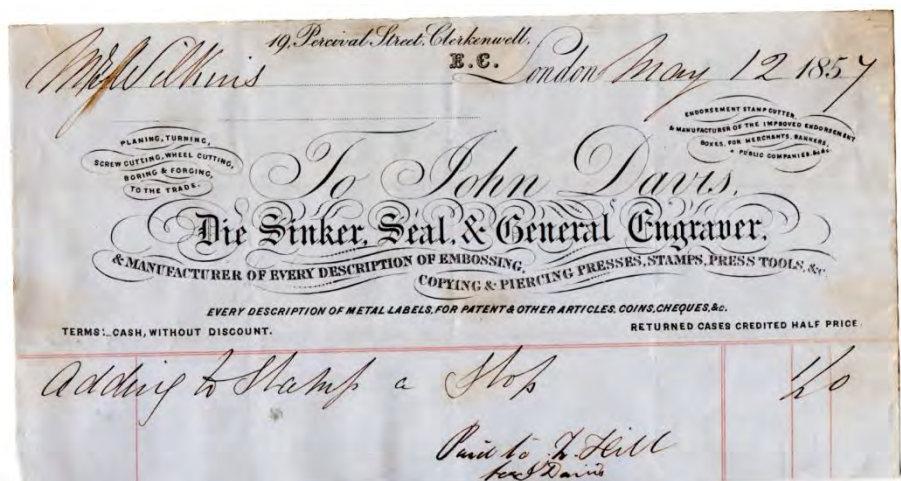 19, Percival Street, Clerkenwell,
E.C.
Wilkins
London May 12 1857
PLANING, TURNING,
SCREW CUTTING, WHEEL CUTTING,
BORING & FORGING,
TO THE TRADE.
ENDORSEMENT STAMP CUTTER,
& MANUFACTURER OF THE IMPROVED ENDORSEMENT
BOXES, FOR MERCHANTS, BANKERS,
& PUBLIC COMPANIES, &c &c.
To John Davis,
Die Sinker, Seal, & General Engraver,
& MANUFACTURER OF EVERY DESCRIPTION OF EMBOSSING,
COPYING & PIERCING PRESSES, STAMPS, PRESS TOOLS, &c
EVERY DESCRIPTION OF METAL LABELS, FOR PATENT & OTHER ARTICLES, COINS, CHEQUES, &c.
TERMS: CASH, WITHOUT DISCOUNT.
RETURNED CASES CREDITED HALF PRICE.
Adding to Stamp a Stop
Paid to Hill
for J Davis